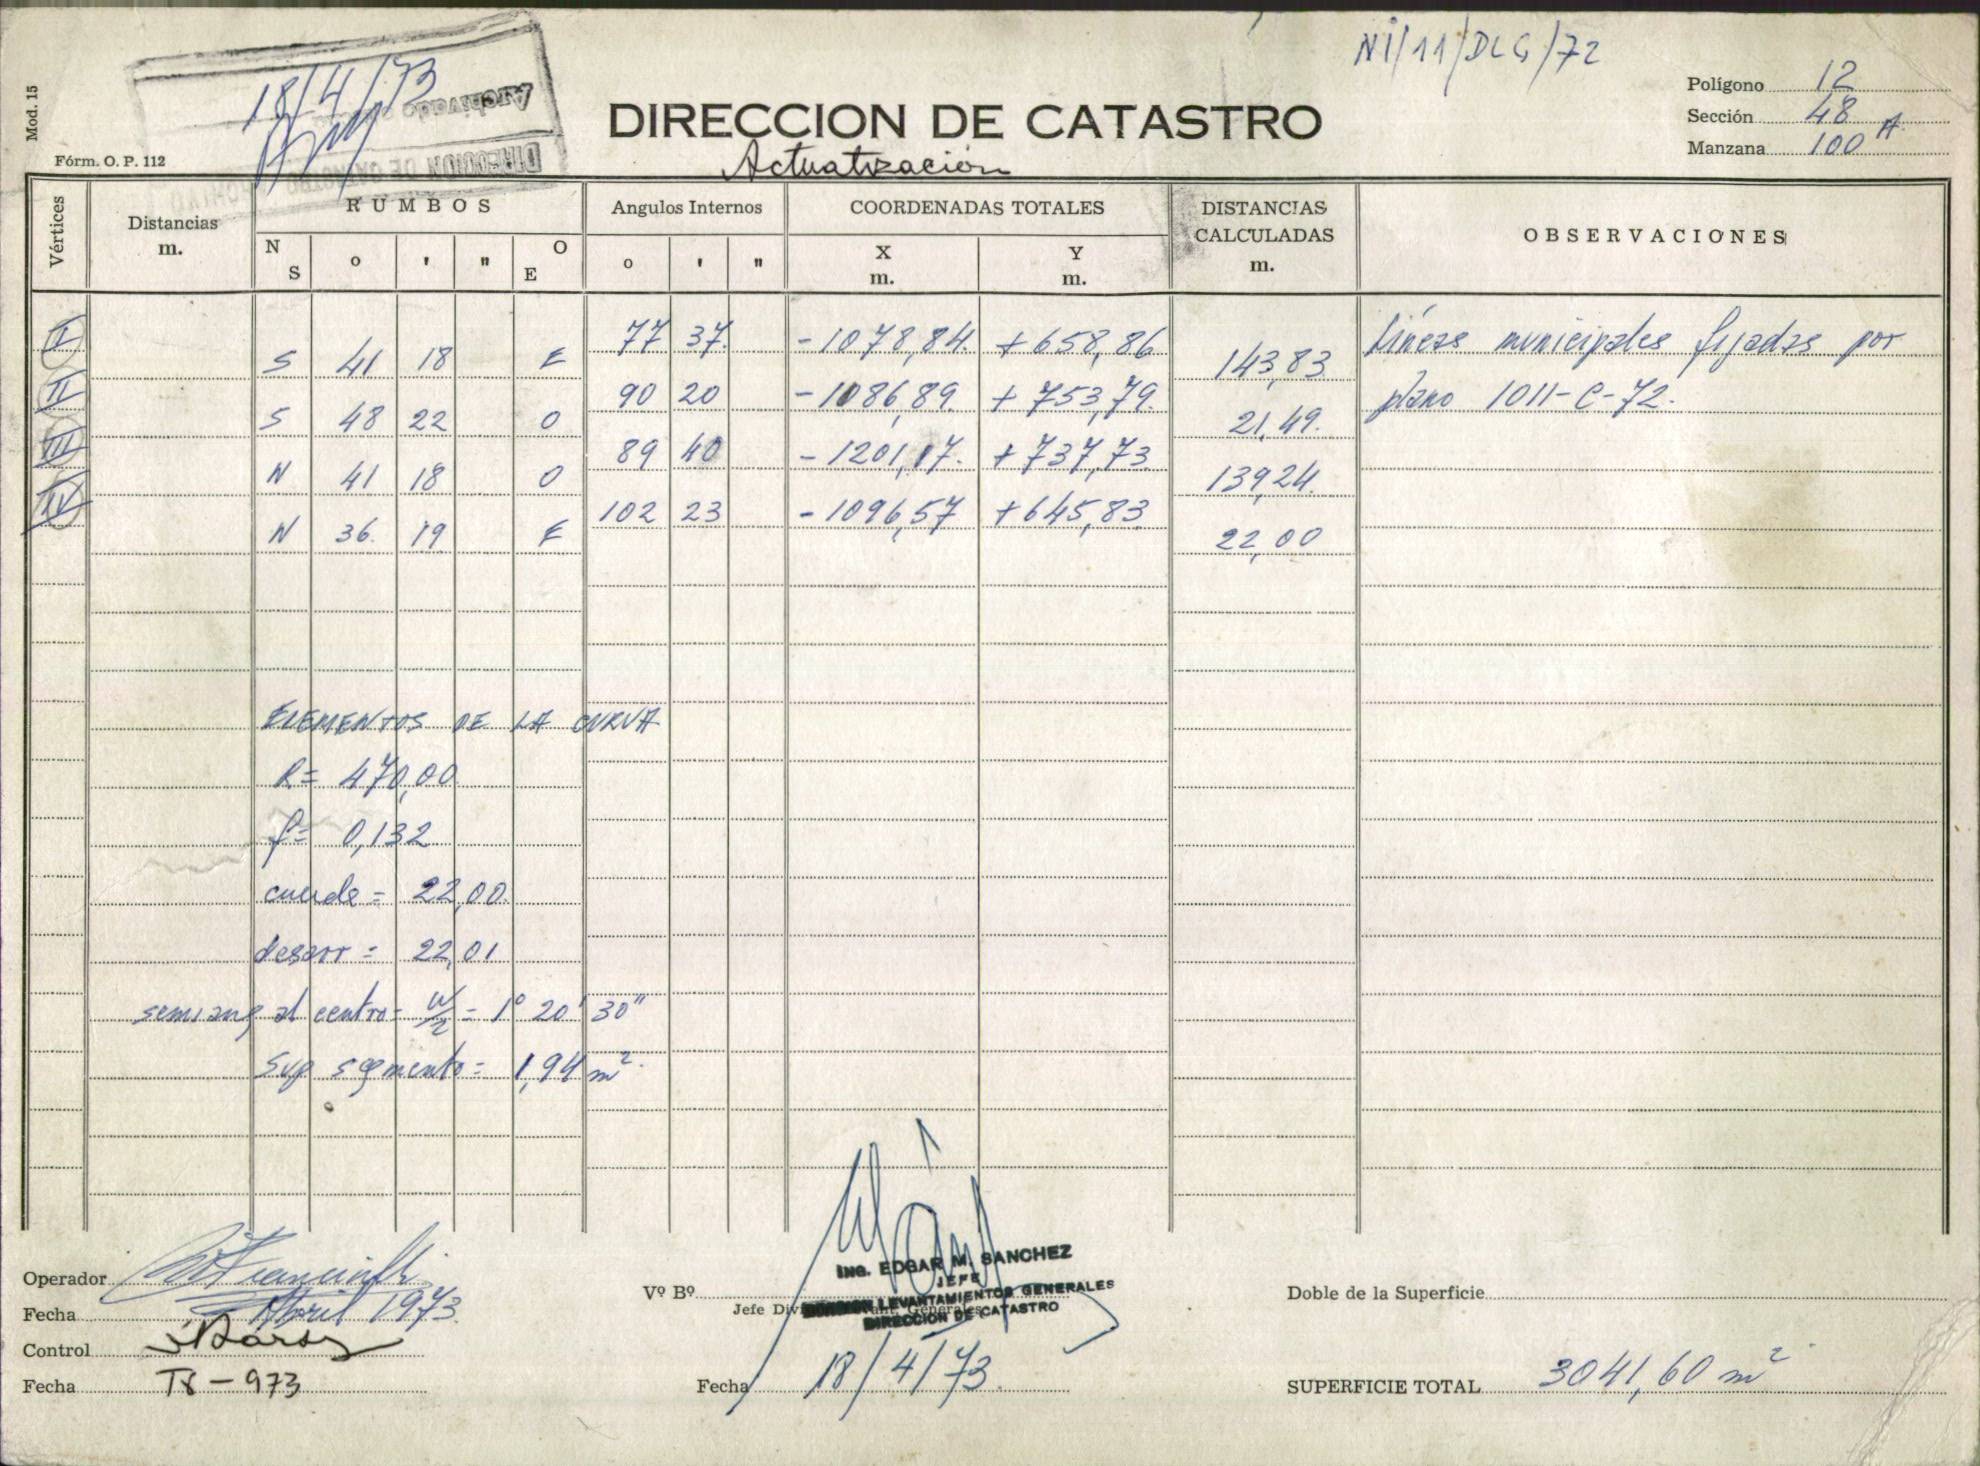 NI/11/DLG/72
Mod. 15
18/4/73
Archivado
DIRECCION DE CATASTRO
Fórm. O. P. 112
DIRECCION DE CATASTRO
Actualización
Polígono 12
Sección 48
Manzana 100 A
Vértices
Distancias m.
RUMBOS
N S ° ' " O E
Angulos Internos
° ' "
COORDENADAS TOTALES
X m. Y m.
DISTANCIAS CALCULADAS m.
OBSERVACIONES
I 77 37 -1078,84 +658,86 Líneas municipales fijadas por
S 41 18 E 143,83
II 90 20 -1086,89 +753,79 plano 1011-C-72.
S 48 22 O 21,49
III 89 40 -1201,17 +737,73
N 41 18 O 139,24
IV 102 23 -1096,57 +645,83
N 36 19 E 22,00
ELEMENTOS DE LA CURVA
R= 470,00
f= 0,132
cuerda = 22,00
desarr = 22,01
semiang al centro = w/2 = 1° 20' 30"
Sup segmento = 1,94 m²
Operador
Fecha Abril 1973
Control
Fecha 973
Vº Bº
Jefe Div. Levant. Generales
ING. EDGAR M. SANCHEZ
JEFE
DIVISION LEVANTAMIENTOS GENERALES
DIRECCION DE CATASTRO
Fecha 18/4/73
Doble de la Superficie
SUPERFICIE TOTAL 3041,60 m²